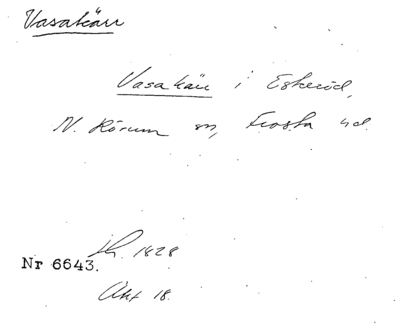 Vasakärr
Vasakärr i Eskeröd,
N. Rörum sn, Frosta hd.
Lh. 1828
Nr 6643.
Akt 18.